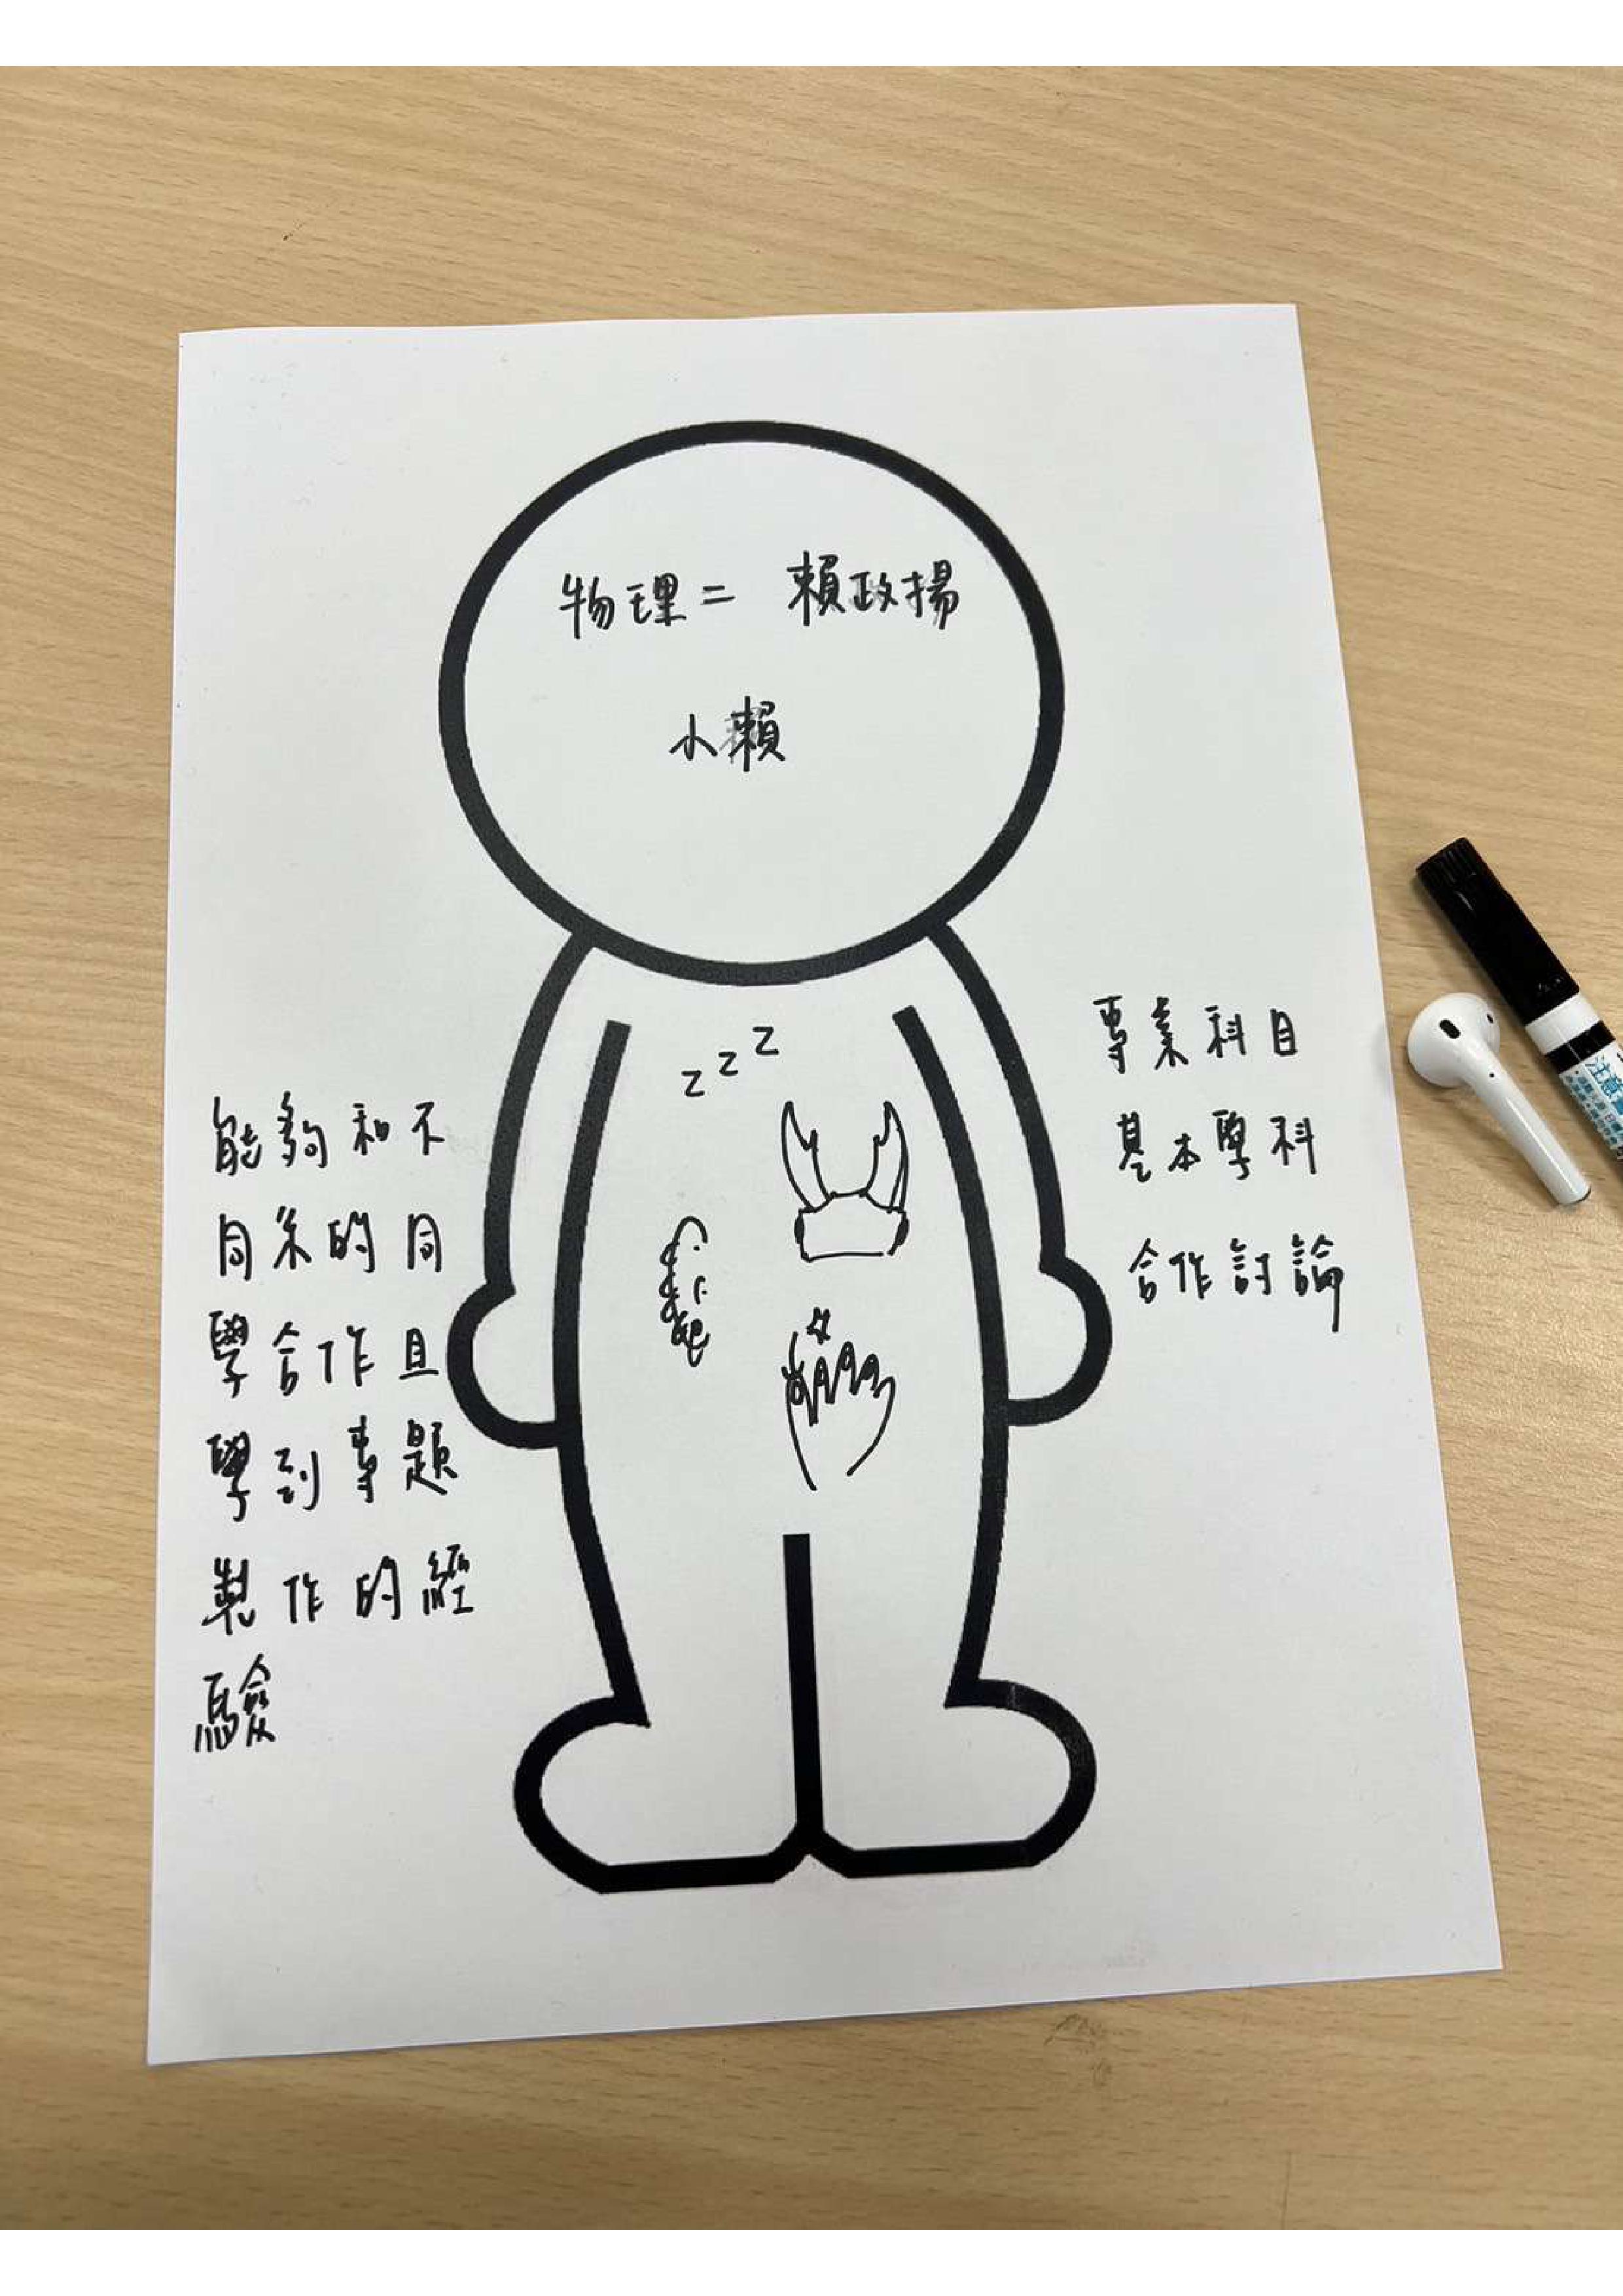 物理二 賴政揚
小賴
z z z
能夠和不
同系的同
學合作且
學到專題
製作的經
驗
專業科目
基本學科
合作討論
注意